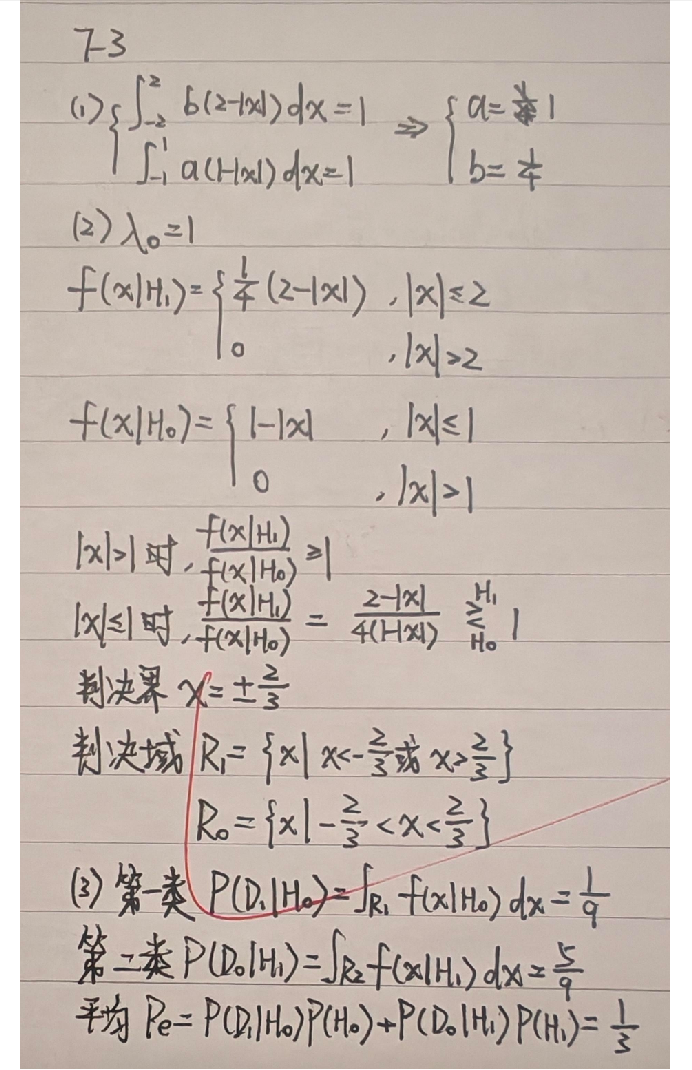 7-3
(1) { ∫_{-2}^{2} b(2-|x|)dx=1 ⇒ { a=1
∫_{-1}^{1} a(1-|x|)dx=1 b=1/4
(2) λ₀=1
f(x|H₁)={ 1/4 (2-|x|) , |x|≤2
0 , |x|>2
f(x|H₀)={ 1-|x| , |x|≤1
0 , |x|>1
|x|>1时, f(x|H₁)/f(x|H₀) ≥1
|x|≤1时, f(x|H₁)/f(x|H₀) = (2-|x|)/(4(1-|x|)) ≷^{H₁}_{H₀} 1
判决界 x=±2/3
判决域 R₁={x| x<-2/3或 x>2/3}
R₀={x|-2/3<x<2/3}
(3) 第一类 P(D₁|H₀)=∫_{R₁} f(x|H₀)dx=1/9
第二类 P(D₀|H₁)=∫_{R₂} f(x|H₁)dx=5/9
平均 Pe=P(D₁|H₀)P(H₀)+P(D₀|H₁)P(H₁)=1/3